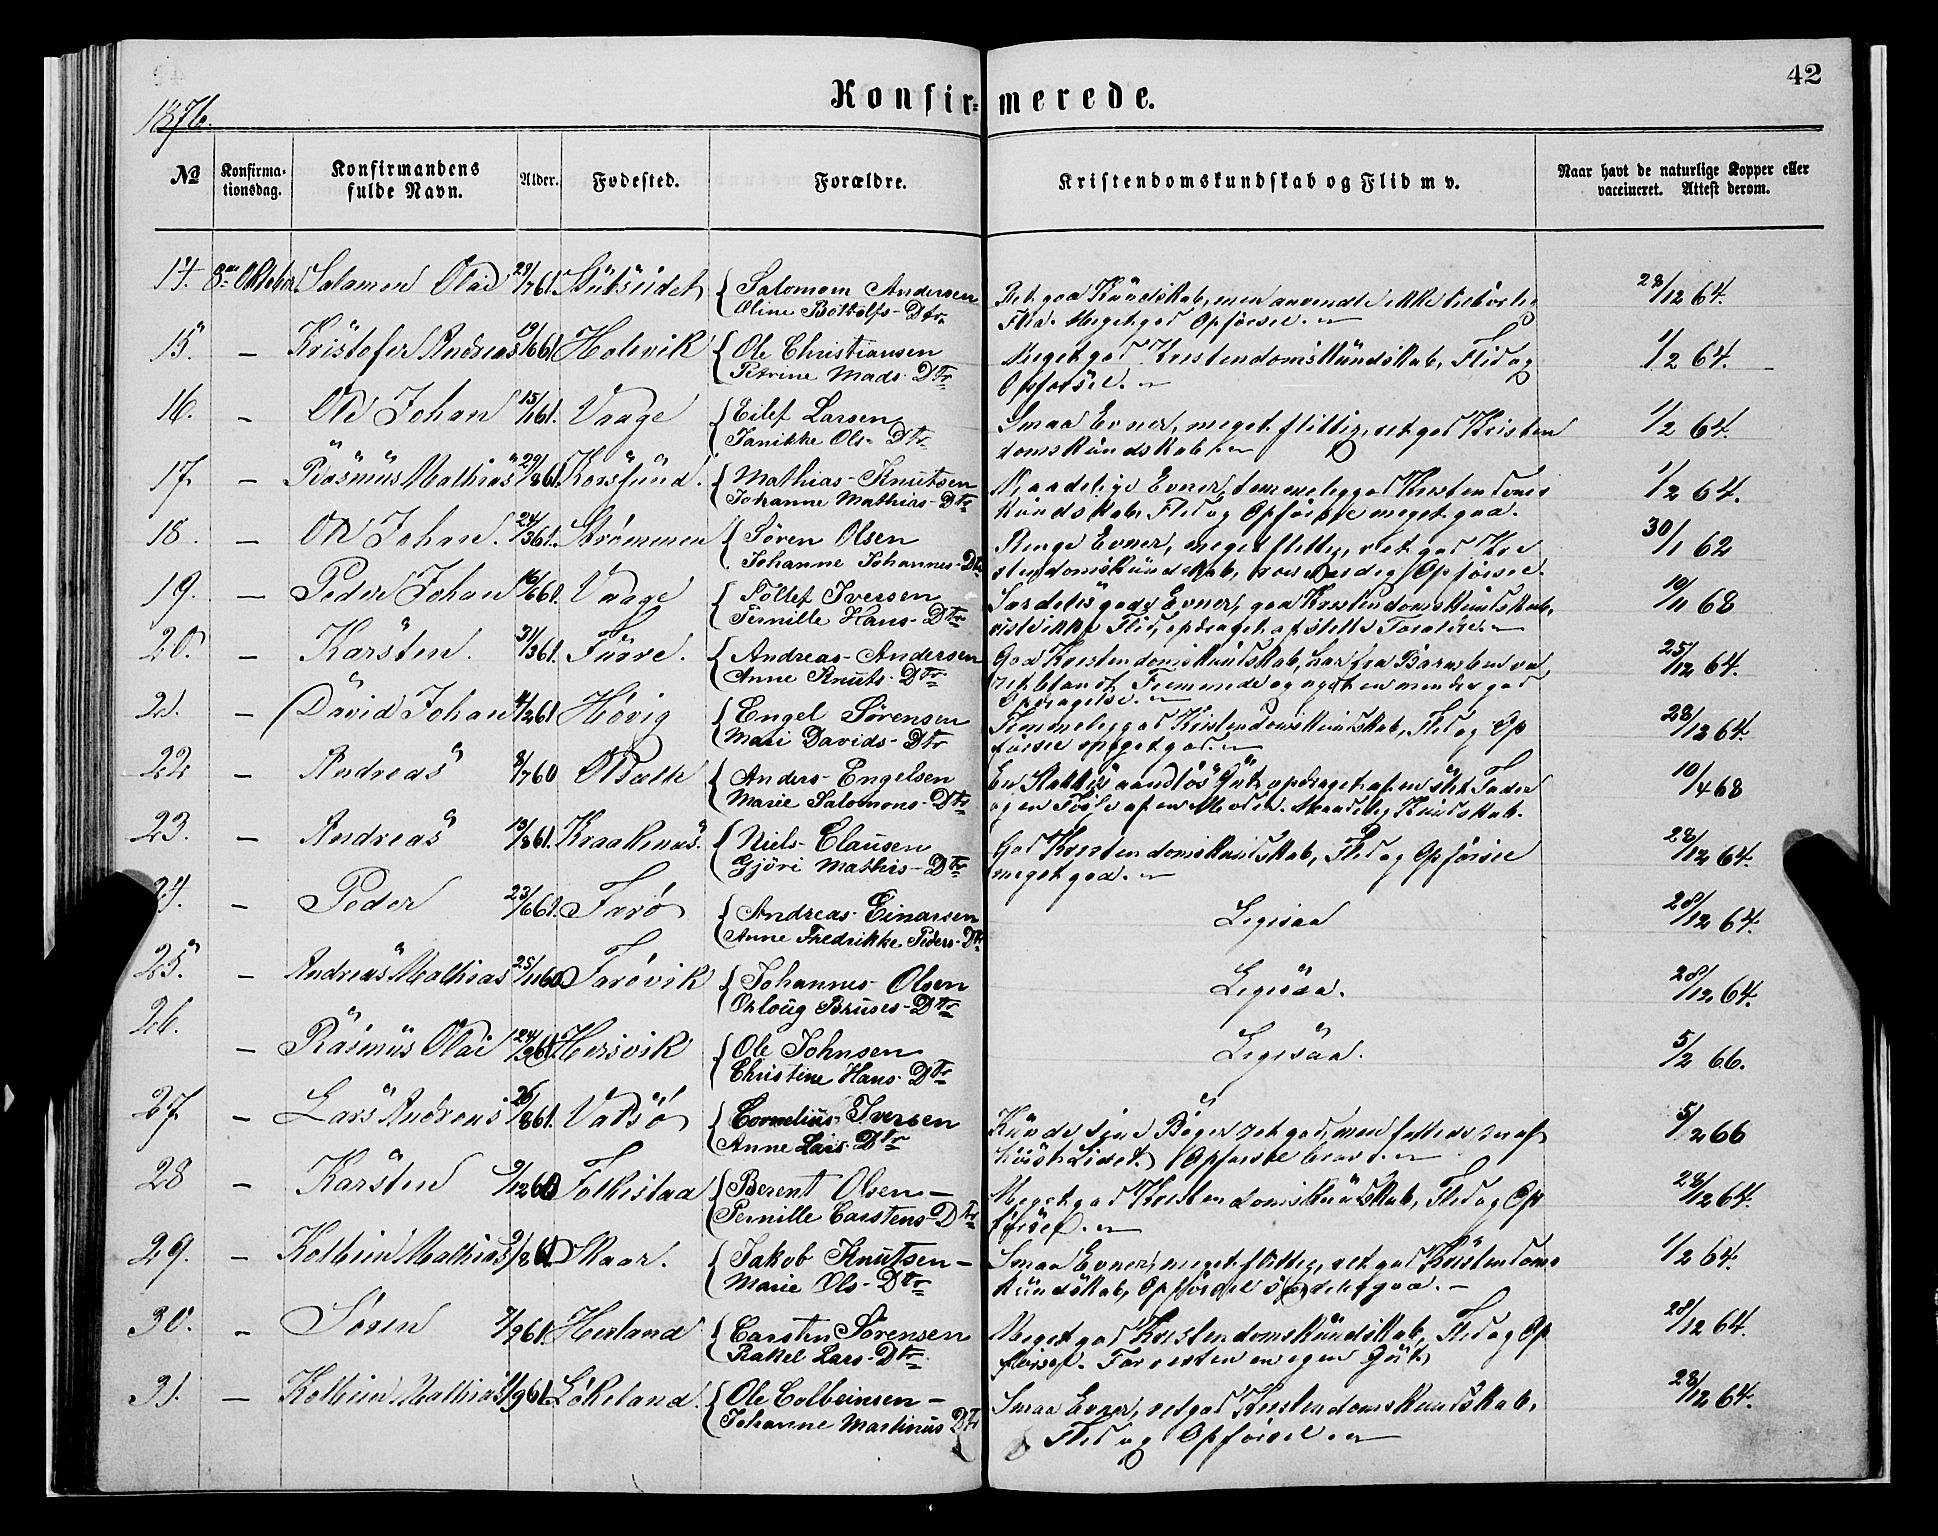 42
Konfirmerede.
1876.
№ Konfirmationsdag. Konfirmandens fulde Navn. Alder. Fødested. Forældre. Kristendomskundskab og Flid m v. Naar havt de naturlige Kopper eller vaccineret. Attest derom.
14. 8de Oktober Salamon Olai 28/7 61. { Salomom Andersen Ret god Kundskab, men anvendte ikke tilbørlig 28/12 64.
Oline Bottolfs-Dtr Flid. Meget god Opførsel.
15. - Kristofer Andreas 19/6 61 Holevik { Ole Christiansen Meget god Kristendomskundskab, Flid og 1/2 64.
Petrine Mads-Dtr Opførsel.
16. - Ole Johan 15/1 61. Vaage { Eilef Larsen Smaa Evner, meget flittig, ret god Kristen 1/2 64.
Janikke Ols-Dtr domskundskab.
17. - Rasmus Mathias 29/8 61. Korssund. { Mathias Knutsen Maadelige Evner, temmelig god Kristendoms 1/2 64.
Johanne Mathias-Dtr kundskab, Flid og Opførsel meget god.
18. - Ole Johan. 24/3 61. Strømmen { Søren Olsen Ringe Evner, meget flittig, ret god Kri 30/1 62
Johanne Johannes-Dtr stendomskundskab, Opførsel.
19. - Peder Johan 16/6 61. Vaage { Tollef Iversen Særdeles gode Evner, god Kristendomskundskab, 10/11 68
Pernille Hans-Dtr viste ikke Flid, opdraget af slette Forældre.
20. - Karsten. 31/3 61. Furre. { Andreas Andersen God Kristendomskundskab, har fra Barnsben væ 25/12 64.
Anne Knuts-Dtr ret blandt Fremmede og nydt en mindre god
Opdragelse.
21. - David Johan 4/2 61 Høvig { Engel Sørensen Temmelig god Kristendomskundskab, Flid og Op 28/12 64.
Mari Davids-Dtr førsel meget god.
22 - Andreas 8/7 60 { Anders Engelsen En aandløs Gut, opdraget af en slet Fader 10/4 68
Marie Salomons-Dtr og en Tøs af en Moder. Maadelig Kundskab.
23. - Andreas 13/8 61. Kraakenæs. { Niels Clausen God Kristendomskundskab, Flid og Opførsel 28/12 64.
Gjöri Mathis-Dtr meget god.
24. - Peder 23/6 61. Færø { Andreas Einarsen Ligesaa 28/12 64.
Anne Fredrikke Peders-Dtr
25. - Andreas Mathias 25/11 60 Færøvik { Johannes Olsen Ligesaa. 28/12 64.
Orloug Bruses-Dtr
26. - Rasmus Olai 24/2 61. Hersvik { Ole Johnsen Ligesaa. 5/2 66.
Christine Hans-Dtr
27. - Lars Andreas 26/8 61. Vatsø { Cornelius Iversen Kunde sine Bøger ret god, men fattede deraf 5/2 66
Anne Lars-Dtr kuns Lidet. Opførsel brav.
28 - Karsten 9/12 60 Folkestad { Berent Olsen - Meget god Kristendomskundskab, Flid og Op 28/12 64.
Pernille Carstens-Dtr førsel.
29. - Kolbein Mathias 9/8 61 Skaar. { Jakob Knutsen - Smaa Evner, meget flittig, ret god Kristendoms 1/2 64.
Marie Ols-Dtr kundskab, Opførsel særdeles god.
30. - Søren 7/9 61. Herland { Carsten Sørensen Meget god Kristendomskundskab, Flid og Op 28/12 64.
Rakel Lars-Dtr førsel. Forresten en egen Gut.
31. - Kolbein Mathias 1/9 61. Løkeland. { Ole Colbeinsen - Smaa Evner, ret god Kristendomskundskab, 28/12 64.
Johanne Martinus Dtr Flid og Opførsel.